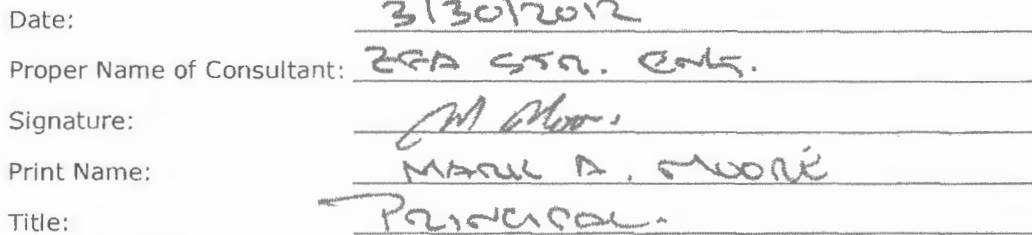 Date: 3/30/2012
Proper Name of Consultant: ZFA STR. ENG.
Signature: M Moore
Print Name: MARK A. MOORE
Title: PRINCIPAL.